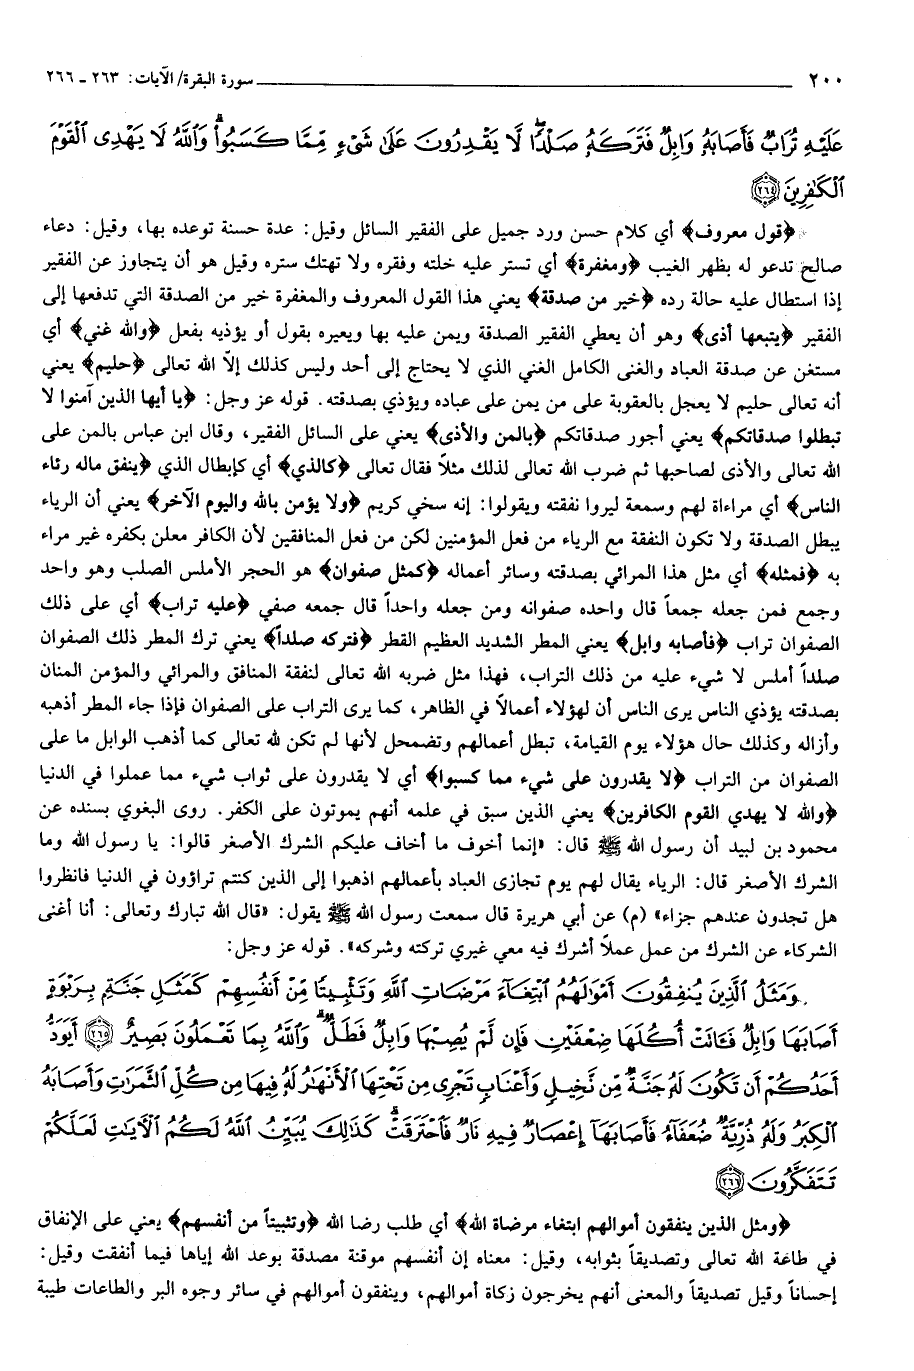 ٢٠٠ سورة البقرة/ الآيات: ٢٦٣ ـ ٢٦٦
عَلَيْهِ تُرَابٌ فَأَصَابَهُ وَابِلٌ فَتَرَكَهُ صَلْدًا لَّا يَقْدِرُونَ عَلَىٰ شَيْءٍ مِّمَّا كَسَبُوا۟ وَاللَّهُ لَا يَهْدِى الْقَوْمَ
الْكَافِرِينَ ٢٦٤
﴿قول معروف﴾ أي كلام حسن ورد جميل على الفقير السائل وقيل: عدة حسنة توعده بها، وقيل: دعاء
صالح تدعو له بظهر الغيب ﴿ومغفرة﴾ أي تستر عليه خلته وفقره ولا تهتك ستره وقيل هو أن يتجاوز عن الفقير
إذا استطال عليه حالة رده ﴿خير من صدقة﴾ يعني هذا القول المعروف والمغفرة خير من الصدقة التي تدفعها إلى
الفقير ﴿يتبعها أذى﴾ وهو أن يعطي الفقير الصدقة ويمن عليه بها ويعيره بقول أو يؤذيه بفعل ﴿والله غني﴾ أي
مستغن عن صدقة العباد والغنى الكامل الغني الذي لا يحتاج إلى أحد وليس كذلك إلاّ الله تعالى ﴿حليم﴾ يعني
أنه تعالى حليم لا يعجل بالعقوبة على من يمن على عباده ويؤذي بصدقته. قوله عز وجل: ﴿يا أيها الذين آمنوا لا
تبطلوا صدقاتكم﴾ يعني أجور صدقاتكم ﴿بالمن والأذى﴾ يعني على السائل الفقير، وقال ابن عباس بالمن على
الله تعالى والأذى لصاحبها ثم ضرب الله تعالى لذلك مثلاً فقال تعالى ﴿كالذي﴾ أي كإبطال الذي ﴿ينفق ماله رئاء
الناس﴾ أي مراءاة لهم وسمعة ليروا نفقته ويقولوا: إنه سخي كريم ﴿ولا يؤمن بالله واليوم الآخر﴾ يعني أن الرياء
يبطل الصدقة ولا تكون النفقة مع الرياء من فعل المؤمنين لكن من فعل المنافقين لأن الكافر معلن بكفره غير مراء
به ﴿فمثله﴾ أي مثل هذا المرائي بصدقته وسائر أعماله ﴿كمثل صفوان﴾ هو الحجر الأملس الصلب وهو واحد
وجمع فمن جعله جمعاً قال واحده صفوانه ومن جعله واحداً قال جمعه صفي ﴿عليه تراب﴾ أي على ذلك
الصفوان تراب ﴿فأصابه وابل﴾ يعني المطر الشديد العظيم القطر ﴿فتركه صلداً﴾ يعني ترك المطر ذلك الصفوان
صلداً أملس لا شيء عليه من ذلك التراب، فهذا مثل ضربه الله تعالى لنفقة المنافق والمرائي والمؤمن المنان
بصدقته يؤذي الناس يرى الناس أن لهؤلاء أعمالاً في الظاهر، كما يرى التراب على الصفوان فإذا جاء المطر أذهبه
وأزاله وكذلك حال هؤلاء يوم القيامة، تبطل أعمالهم وتضمحل لأنها لم تكن لله تعالى كما أذهب الوابل ما على
الصفوان من التراب ﴿لا يقدرون على شيء مما كسبوا﴾ أي لا يقدرون على ثواب شيء مما عملوا في الدنيا
﴿والله لا يهدي القوم الكافرين﴾ يعني الذين سبق في علمه أنهم يموتون على الكفر. روى البغوي بسنده عن
محمود بن لبيد أن رسول الله ﷺ قال: «إنما أخوف ما أخاف عليكم الشرك الأصغر قالوا: يا رسول الله وما
الشرك الأصغر قال: الرياء يقال لهم يوم تجازى العباد بأعمالهم اذهبوا إلى الذين كنتم تراؤون في الدنيا فانظروا
هل تجدون عندهم جزاء» (م) عن أبي هريرة قال سمعت رسول الله ﷺ يقول: «قال الله تبارك وتعالى: أنا أغنى
الشركاء عن الشرك من عمل عملاً أشرك فيه معي غيري تركته وشركه». قوله عز وجل:
وَمَثَلُ الَّذِينَ يُنفِقُونَ أَمْوَالَهُمُ ابْتِغَاءَ مَرْضَاتِ اللَّهِ وَتَثْبِيتًا مِّنْ أَنفُسِهِمْ كَمَثَلِ جَنَّةٍ بِرَبْوَةٍ
أَصَابَهَا وَابِلٌ فَـَٔاتَتْ أُكُلَهَا ضِعْفَيْنِ فَإِن لَّمْ يُصِبْهَا وَابِلٌ فَطَلٌّ وَاللَّهُ بِمَا تَعْمَلُونَ بَصِيرٌ ٢٦٥ أَيَوَدُّ
أَحَدُكُمْ أَن تَكُونَ لَهُ جَنَّةٌ مِّن نَّخِيلٍ وَأَعْنَابٍ تَجْرِى مِن تَحْتِهَا الْأَنْهَٰرُ لَهُ فِيهَا مِن كُلِّ الثَّمَرَٰتِ وَأَصَابَهُ
الْكِبَرُ وَلَهُ ذُرِّيَّةٌ ضُعَفَاءُ فَأَصَابَهَا إِعْصَارٌ فِيهِ نَارٌ فَاحْتَرَقَتْ كَذَٰلِكَ يُبَيِّنُ اللَّهُ لَكُمُ الْآيَٰتِ لَعَلَّكُمْ
تَتَفَكَّرُونَ ٢٦٦
﴿ومثل الذين ينفقون أموالهم ابتغاء مرضاة الله﴾ أي طلب رضا الله ﴿وتثبيتاً من أنفسهم﴾ يعني على الإنفاق
في طاعة الله تعالى وتصديقاً بثوابه، وقيل: معناه إن أنفسهم موقنة مصدقة بوعد الله إياها فيما أنفقت وقيل:
إحساناً وقيل تصديقاً والمعنى أنهم يخرجون زكاة أموالهم، وينفقون أموالهم في سائر وجوه البر والطاعات طيبة